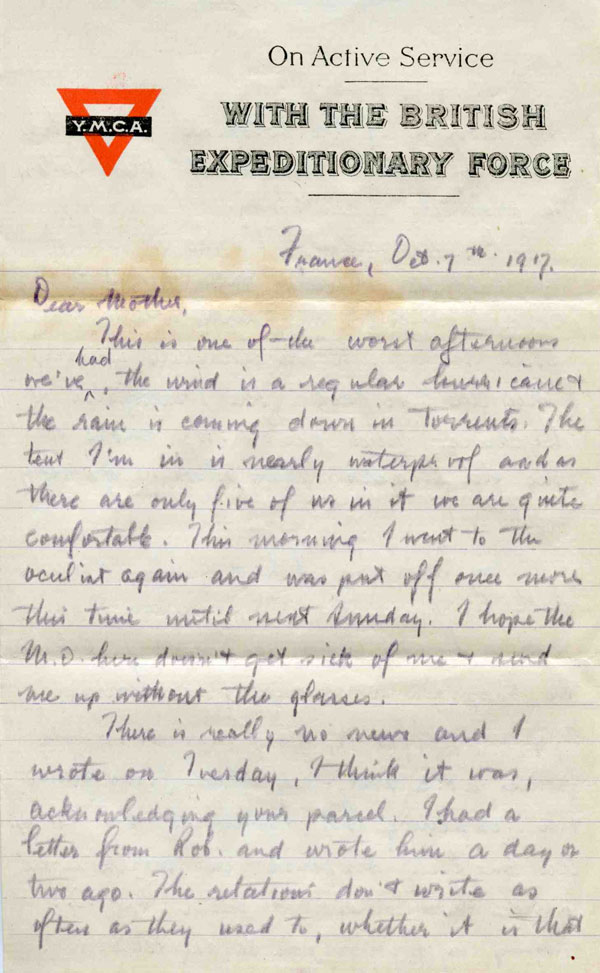 On Active Service
Y.M.C.A.
WITH THE BRITISH
EXPEDITIONARY FORCE
France, Oct. 7th 1917.
Dear Mother,
This is one of the worst afternoons
had
we've, the wind is a regular hurricane &
the rain is coming down in torrents. The
tent I'm in is nearly waterproof and as
there are only five of us in it we are quite
comfortable. This morning I went to the
oculist again and was put off once more
this time until next Sunday. I hope the
M.O. here doesn't get sick of me & send
me up without the glasses.
There is really no news and I
wrote on Tuesday, I think it was,
acknowledging your parcel. I had a
letter from Rob. and wrote him a day or
two ago. The relations don't write as
often as they used to, whether it is that